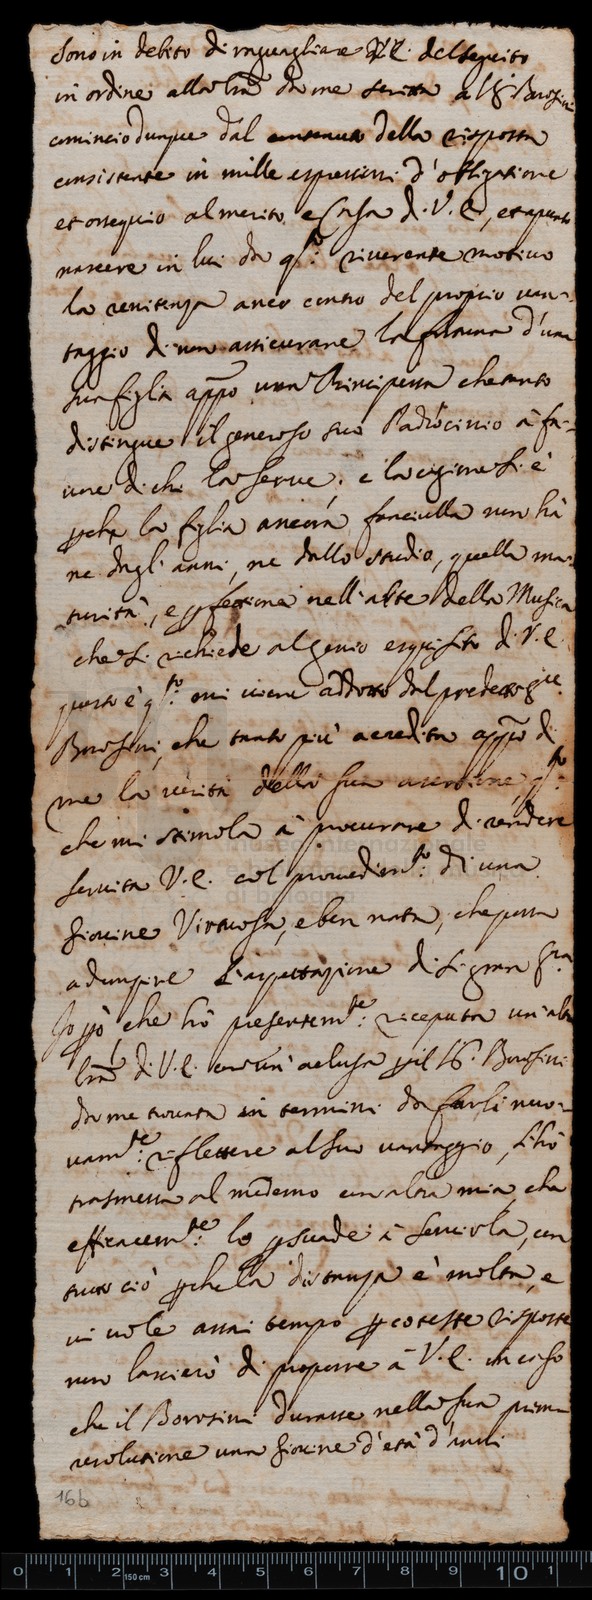 Sono in debito di ragguagliare V.E. del seguito
in ordine alla lra da me scritta al Sig.r Borosini
comincio dunque dal contenuto della risposta
consistente in mille espressioni d'obligatione
et ossequio al merito, e Casa di V.E., et apunto
nascere in lui da q.sto riverente motivo
la renitenza anco contro del proprio van-
taggio di non assicurare la fortuna d'una
sua figlia appo una Principessa che tanto
distingue il generoso suo Padrocinio à fa-
vore di chi la serve; e la cagione si è
pche la figlia ancora fanciulla non hà
ne dagl'anni, ne dallo studio, quella ma-
turità, e pfetione nell'arte della Musica
che si richiede al genio esquisito di V.E.
questo è q.to mi viene addotto dal predetto
Borosini, che tanto più acredita appo di
me la verità della sua asertione, q.to
che mi stimola à procurare di rendere
servita V.E. col provedim.to di una
Giovine Virtuosa, e ben nata, che possa
adempire l'aspettazione di si gran
Io pò che hò presentem.te riceputa un'altra
lra di V.E. con un'aclusa p il Sig. Borosini
da me trovata in termini da farli nuo-
vam.te riflettere al suo vantaggio, l'hò
trasmessa al medemo con altra mia, che
efficacem.te lo psuade à servirla, con
tutto ciò pche la distanza è molta, e
vi vole assai tempo p coteste risposte
non lascierò di proporre à V.E. in caso
che il Borosini durasse nella sua prima
resolutione una Giovine d'età d'anni
16b
museo internazionale
di bologna
0 1 2 3 4 5 6 7 8 9 10 1
150 cm